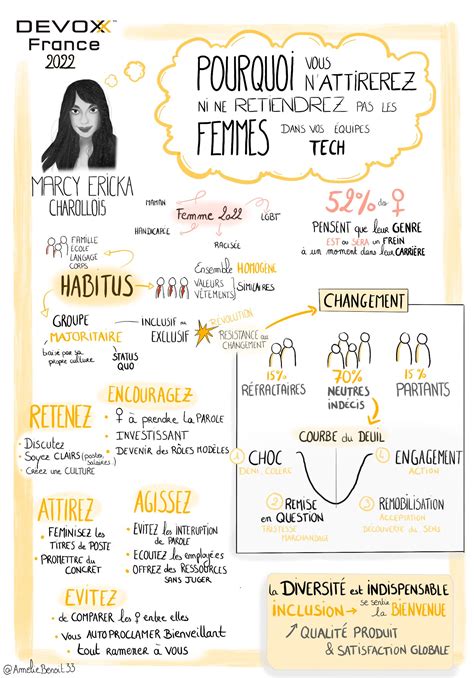 DEVOXX™
France
2022
POURQUOI VOUS
N'ATTIREREZ
NI NE RETIENDREZ PAS LES
FEMMES DANS VOS ÉQUIPES
TECH
MARCY ERICKA
CHAROLLOIS
MAMAN
Femme 2022
LGBT
HANDICAPÉE
RACISÉE
52% des ♀
PENSENT que leur GENRE
EST ou SERA un FREIN
à un moment dans leur CARRIÈRE
FAMILLE
ÉCOLE
LANGAGE
CORPS
HABITUS
Ensemble HOMOGÈNE
VALEURS
VÊTEMENTS
SIMILAIRES
GROUPE
MAJORITAIRE
basé par sa
propre culture
STATUS
QUO
INCLUSIF ou
EXCLUSIF
RÉVOLUTION
RESISTANCE au
CHANGEMENT
CHANGEMENT
15%
RÉFRACTAIRES
70%
NEUTRES
INDÉCIS
15%
PARTANTS
COURBE du DEUIL
① CHOC
DENI, COLÈRE
④ ENGAGEMENT
ACTION
② REMISE
en QUESTION
TRISTESSE
MARCHANDAGE
③ REMOBILISATION
ACCEPTATION
DÉCOUVERTE du SENS
RETENEZ
• Discutez
• Soyez CLAIRS (postes, salaires..)
• Créez une CULTURE
ENCOURAGEZ
• ♀ à prendre la PAROLE
• INVESTISSANT
• DEVENIR des RÔLES MODÈLES
ATTIREZ
• FÉMINISEZ les
TITRES de POSTE
• PROMETTRE du
CONCRET
AGISSEZ
• ÉVITEZ les INTERUPTION
de PAROLE
• ECOUTEZ les employées
• OFFREZ des RESSOURCES
SANS JUGER
EVITEZ
de COMPARER les ♀ entre elles
Vous AUTOPROCLAMER Bienveillant
tout ramener à vous
la DIVERSITÉ est INDISPENSABLE
INCLUSION → se sentir la BIENVENUE
↗ QUALITÉ PRODUIT
& SATISFACTION GLOBALE
@AmélieBenoit33